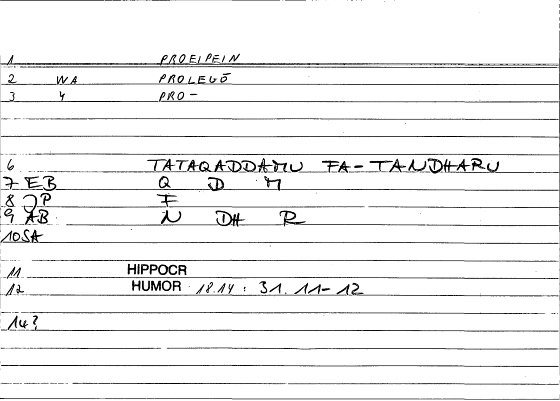 1 PROEIPEIN
2 WA PROLEGŌ
3 4 PRO-
6 TATAQADDAMU FA-TANDHARU
7 EB Q D M
8 JP F
9 AB N DH R
10 SA
11 HIPPOCR
12 HUMOR 18.14 : 31. 11-12
14?